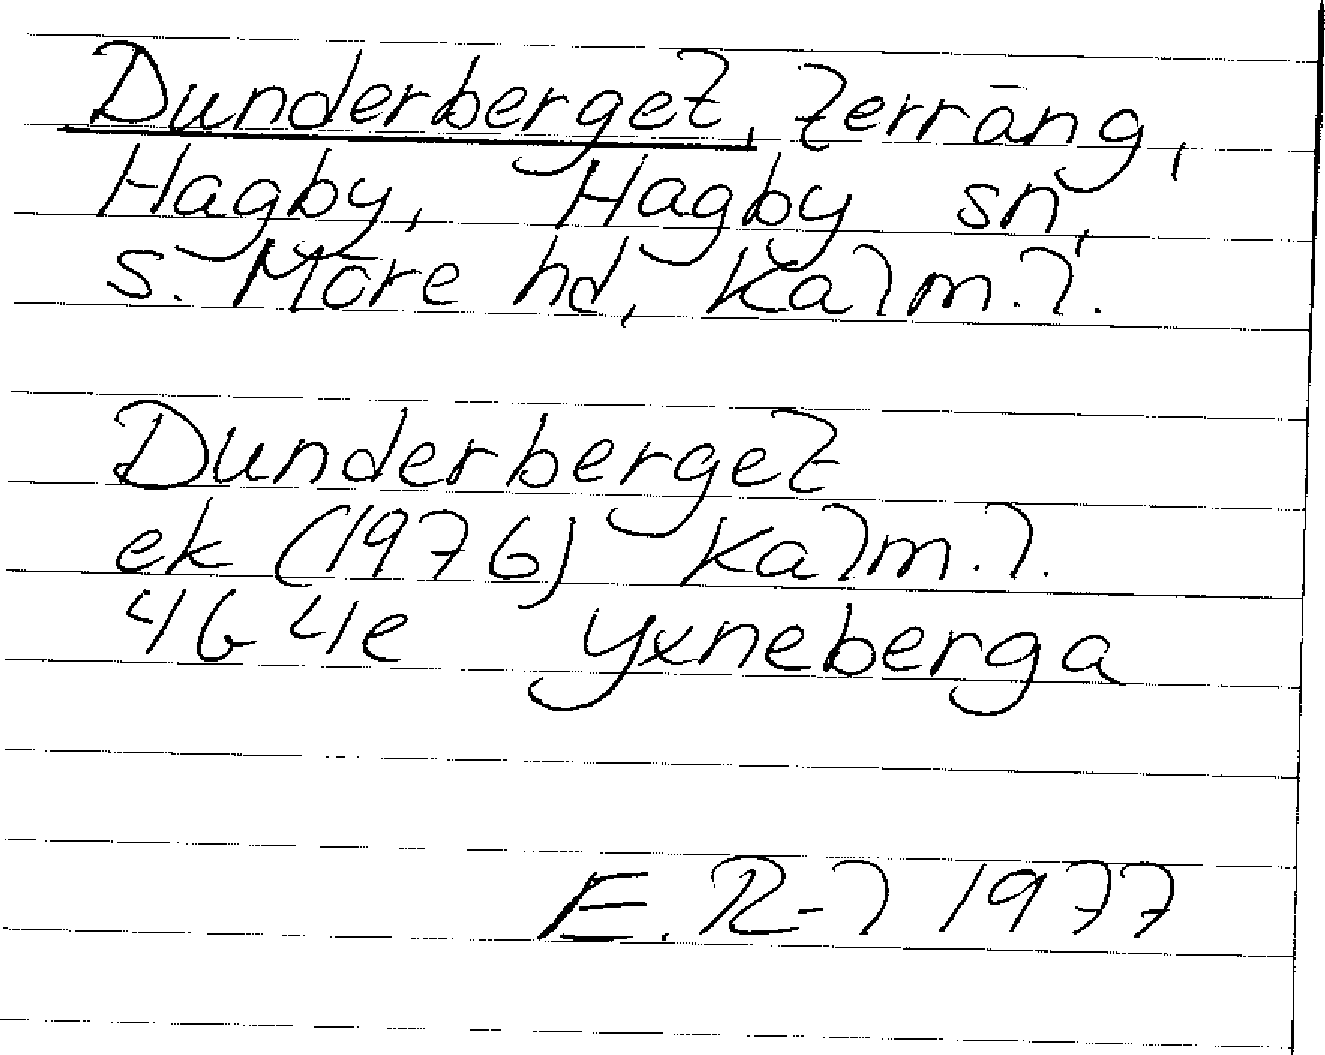 Dunderberget, terräng,
Hagby, Hagby sn,
S. Möre hd, Kalm. l.
Dunderberget
ek (1976) Kalm. l.
4G 4e Yxneberga
E. R-l 1977